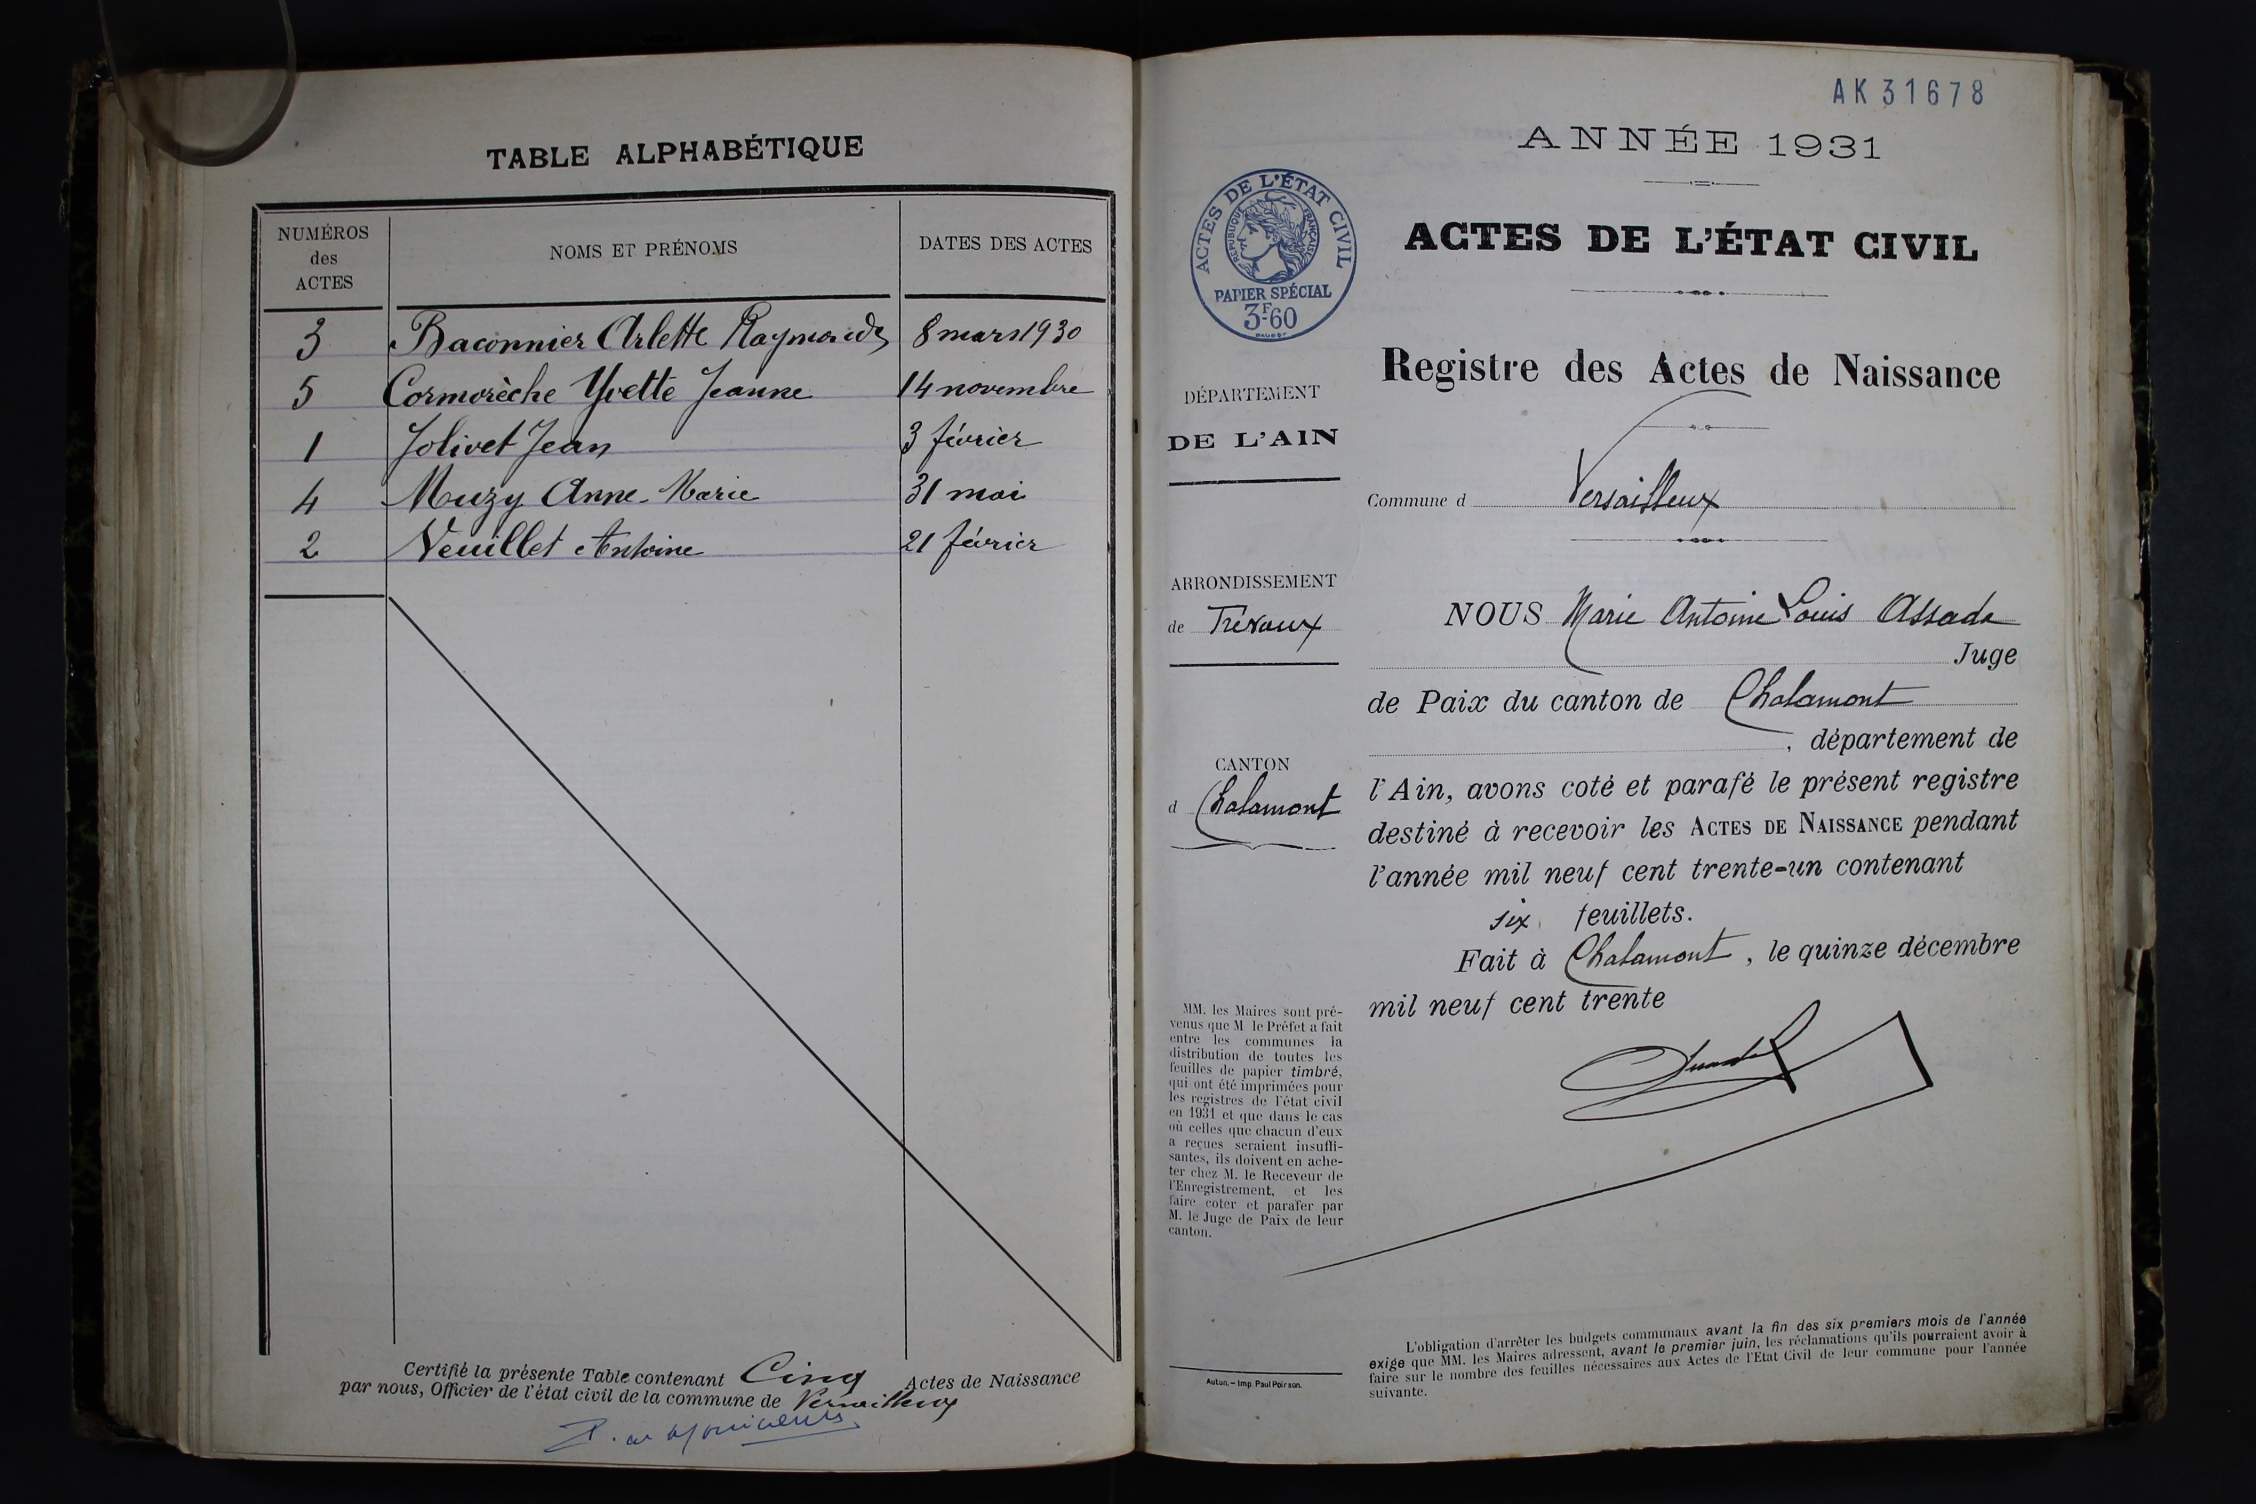 TABLE ALPHABÉTIQUE
NUMÉROS des ACTES
NOMS ET PRÉNOMS
DATES DES ACTES
3 Baconnier Arlette Raymonde 8 mars 1930
5 Cormorèche Yvette Jeanne 14 novembre
1 Jolivet Jean 3 février
4 Muzy Anne-Marie 31 mai
2 Veuillet Antoine 21 février
Certifié la présente Table contenant Cinq Actes de Naissance
par nous, Officier de l'état civil de la commune de Versailleux
AK 31678
ANNÉE 1931
ACTES DE L'ÉTAT CIVIL
RÉPUBLIQUE FRANÇAISE
PAPIER SPÉCIAL
3F-60
ACTES DE L'ÉTAT CIVIL
Registre des Actes de Naissance
DÉPARTEMENT
DE L'AIN
Commune d Versailleux
ARRONDISSEMENT
de Trévoux
NOUS Marie Antoine Louis
Juge
de Paix du canton de Chalamont
, département de
CANTON
d Chalamont
l'Ain, avons coté et parafé le présent registre
destiné à recevoir les ACTES DE NAISSANCE pendant
l'année mil neuf cent trente-un contenant
six feuillets.
Fait à Chalamont, le quinze décembre
mil neuf cent trente
MM. les Maires sont pré-
venus que M le Préfet a fait
entre les communes la
distribution de toutes les
feuilles de papier timbré,
qui ont été imprimées pour
les registres de l'état civil
en 1931 et que dans le cas
où celles que chacun d'eux
a reçues seraient insuffi-
santes, ils doivent en ache-
ter chez M. le Receveur de
l'Enregistrement, et les
faire coter et parafer par
M. le Juge de Paix de leur
canton.
Autun. — Imp. Paul Poirson.
L'obligation d'arrêter les budgets communaux avant la fin des six premiers mois de l'année
exige que MM. les Maires adressent, avant le premier juin, les réclamations qu'ils pourraient avoir à
faire sur le nombre des feuilles nécessaires aux Actes de l'Etat Civil de leur commune pour l'année
suivante.